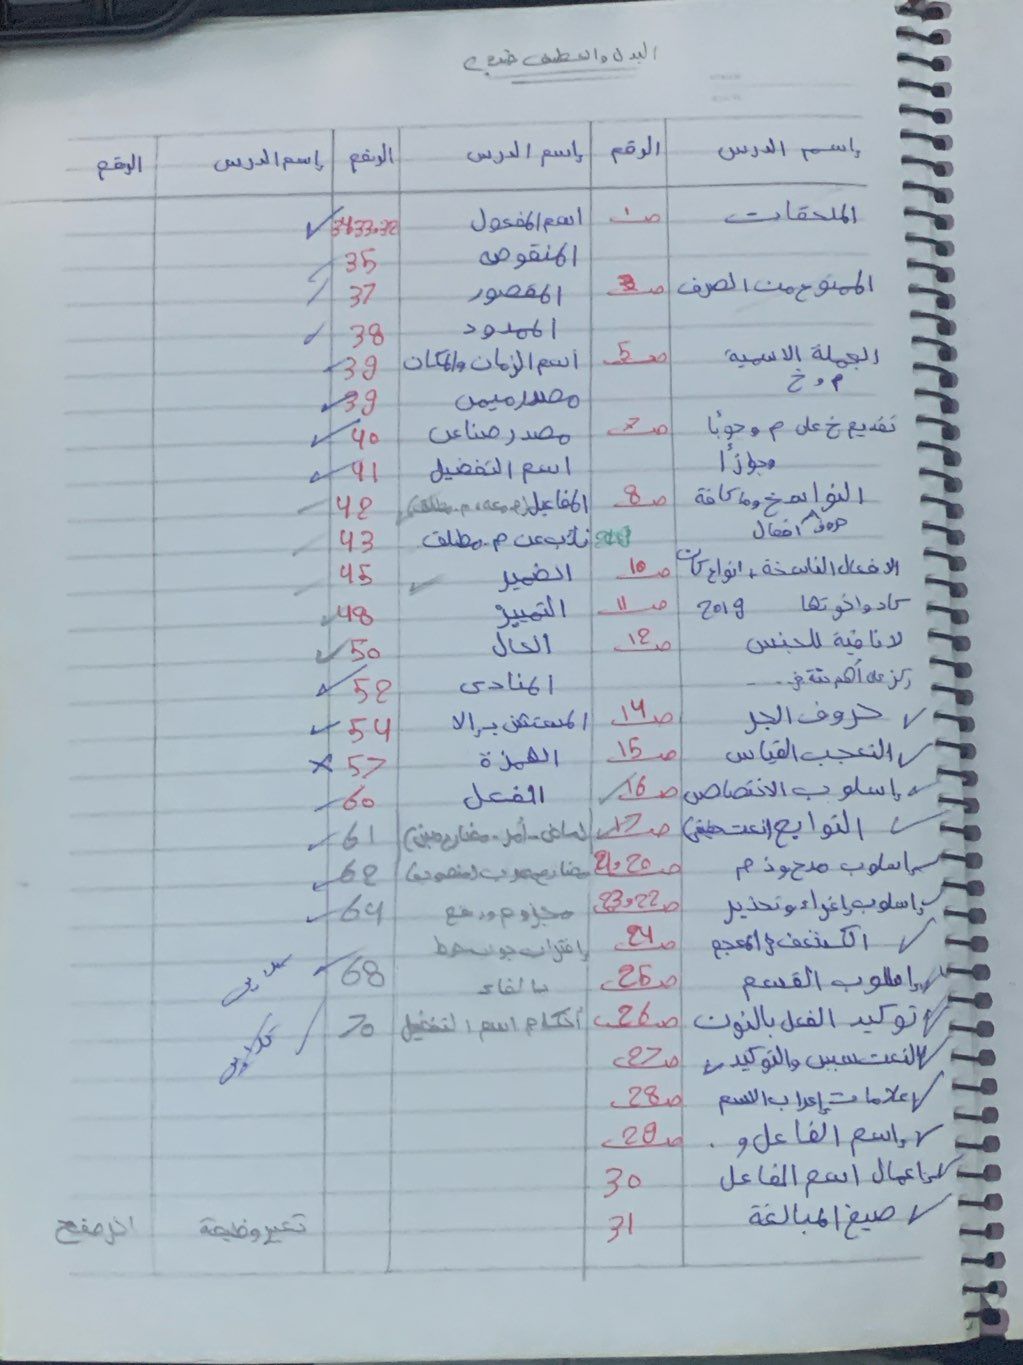 البدل والعطف
إسم الدرس الرقم إسم الدرس الرقم إسم الدرس الرقم
الملحقات ص١
الممنوع من الصرف ص3
الجملة الاسمية ص5
م و خ
تقديم خ على م وجوبًا ص7
وجوازًا
النواسخ وما كافة ص8
حروف افعال
الافعال الناسخة، انواع كان ص10
كاد واخوتها 2019 ص11
لا نافية للجنس ص12
حروف الجر ص14
التعجب القياس ص15
إسلوب الاختصاص ص16
التوابع (نعت حقيقي) ص17
إسلوب مدح وذم ص20، 21
إسلوب إغراء وتحذير ص22، 23
الكشف في المعجم ص24
إسلوب القسم ص25
توكيد الفعل بالنون ص26
النعت سببي والتوكيد ص27
علامات إعراب الاسم ص28
إسم الفاعل و . ص29
إعمال اسم الفاعل 30
صيغ المبالغة 31
اسم المفعول 32، 33، 34
المنقوص 35
المقصور 37
الممدود 38
اسم الزمان والمكان 39
مصدر ميمي 39
مصدر صناعي 40
اسم التفضيل 41
المفاعيل (م. معه، م. مطلق) 42
نائب عن م. مطلق 43
الضمير 45
التمييز 48
الحال 50
المنادى 52
المستثنى بـ إلا 54
الهمزة 57
الفعل 60
(ماضي - أمر - مضارع مبني) 61
مضارع معرب (منصوب) 62
مجزوم ورفع 64
إقتران جواب شرط
بالفاء 68
أحكام اسم التفضيل 70
تعبير وظيفي اخر صفحة